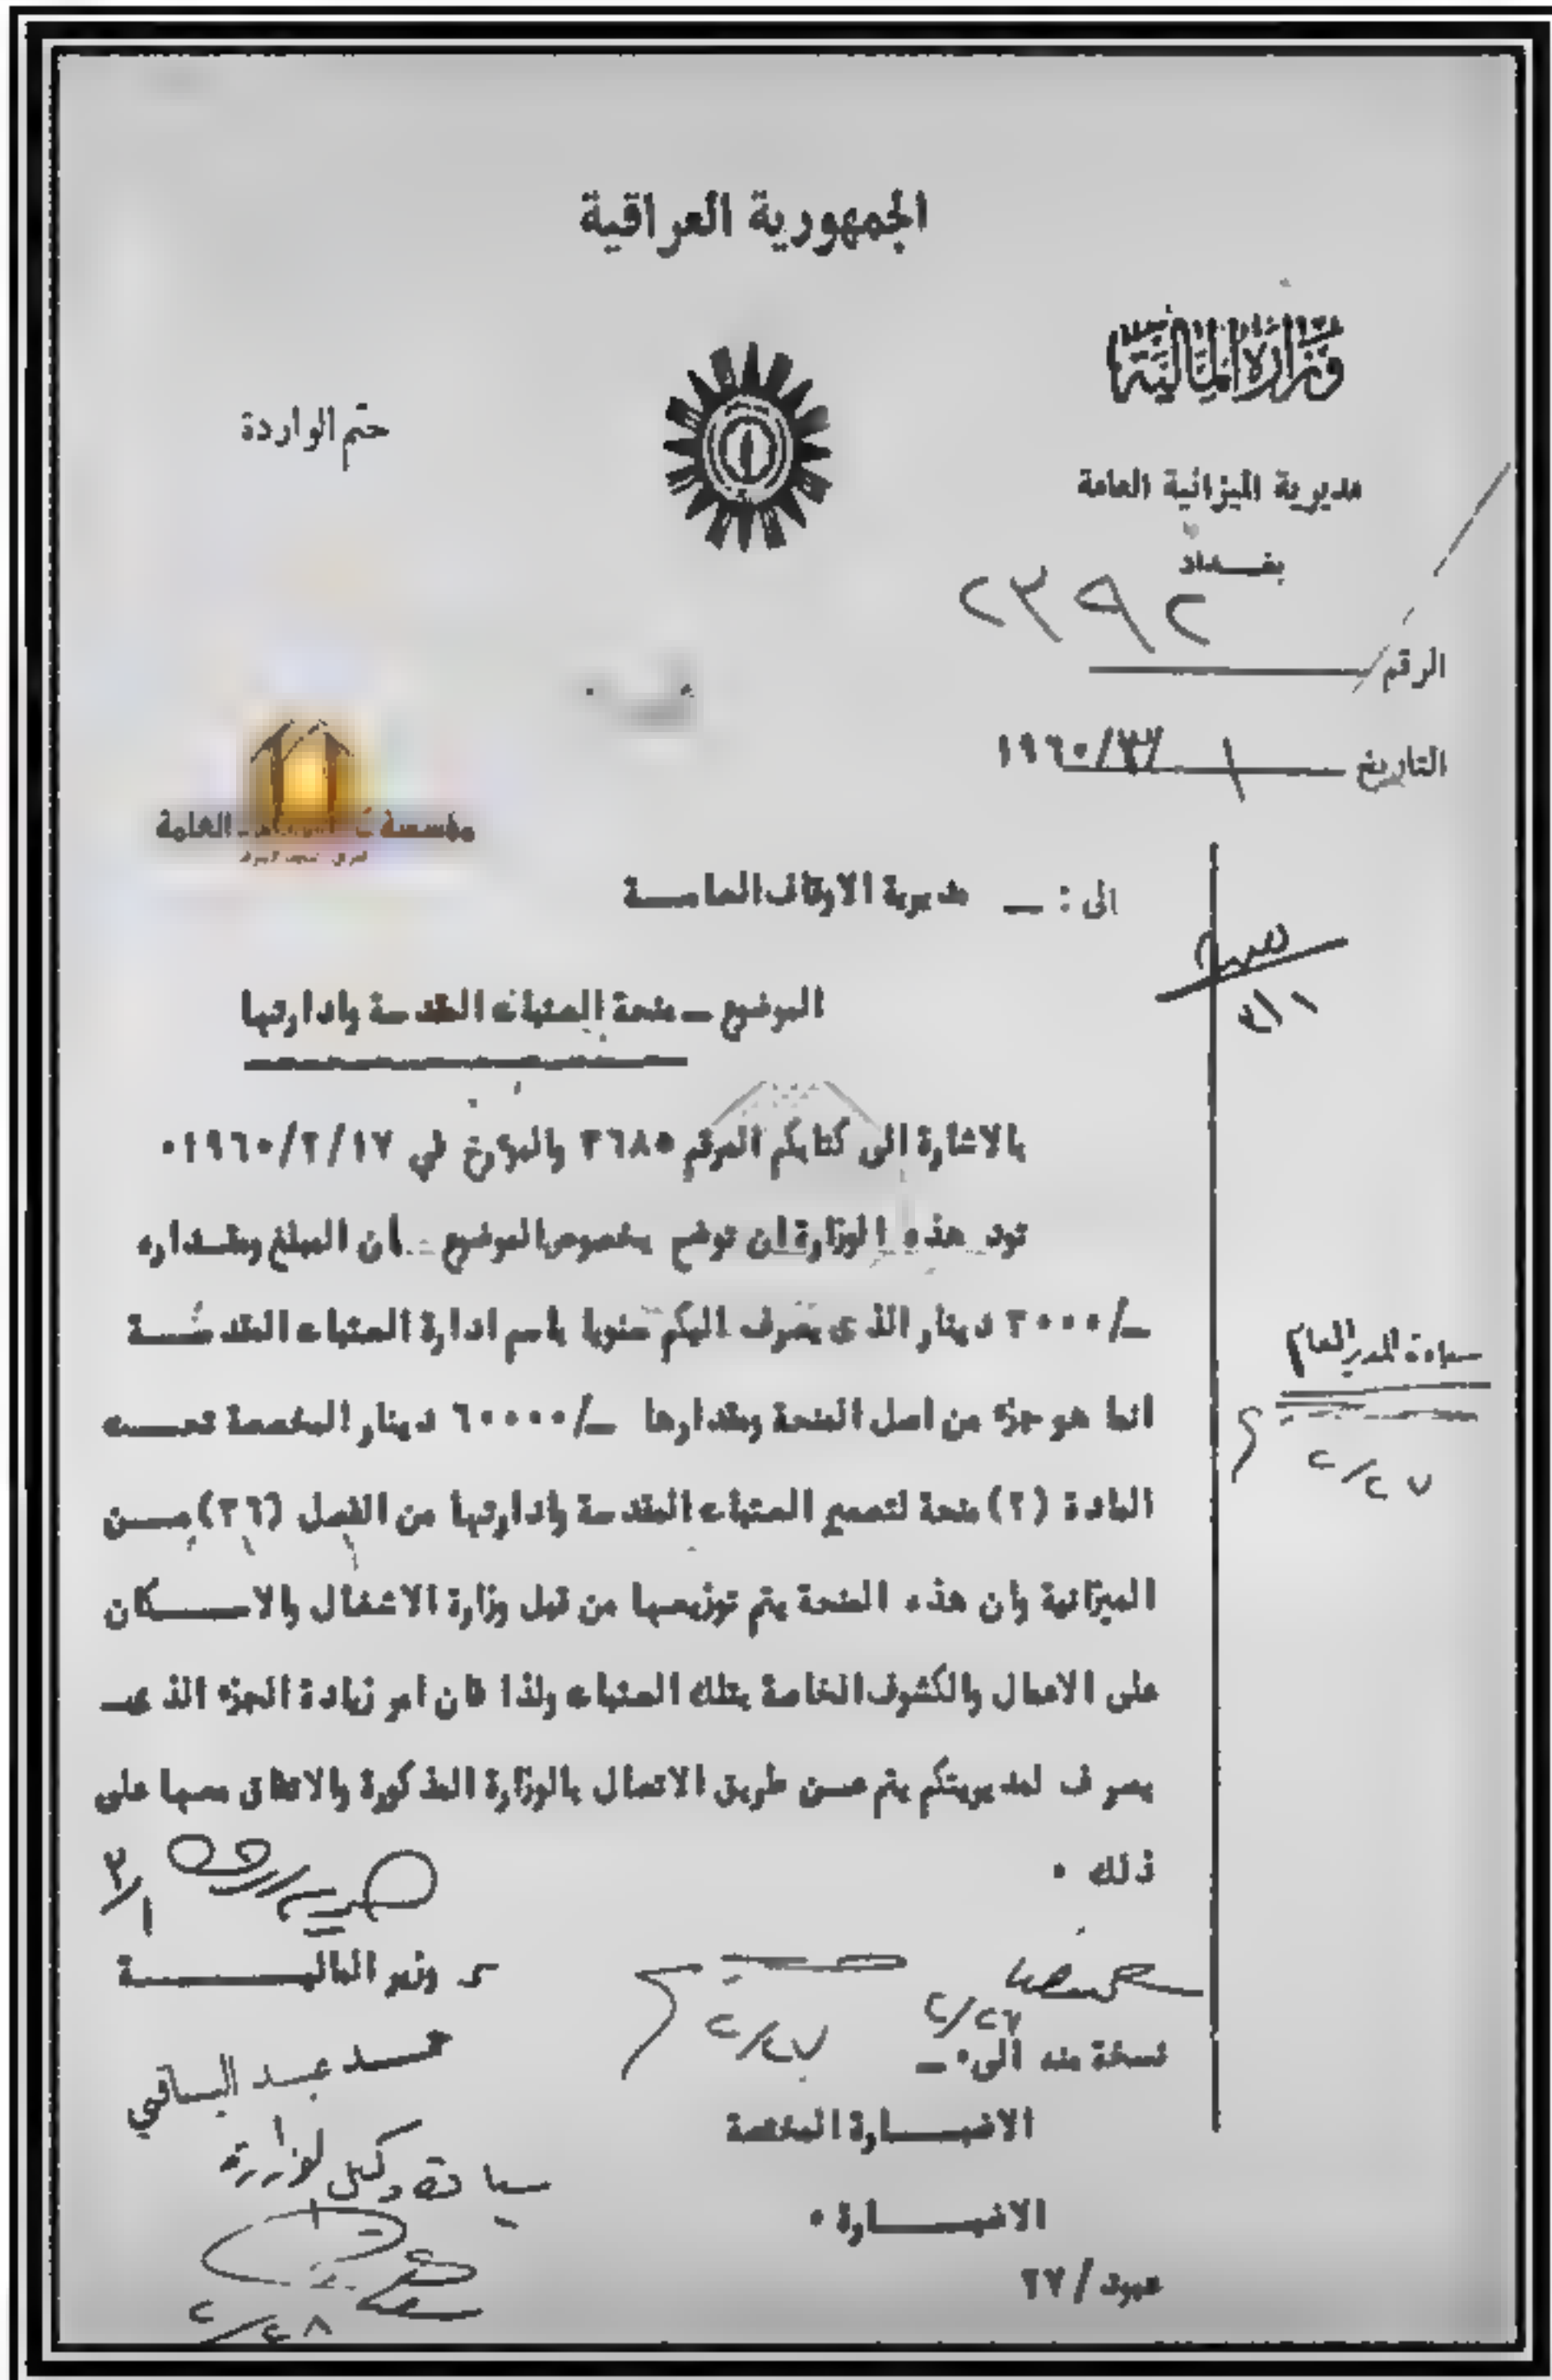 الجمهورية العراقية
وزارة المالية
ختم الواردة
مديرية الميزانية العامة
بغـــداد
٢٣٩٢
الرقم
التاريخ ١/٣/١٩٦٠
مؤسسة العامة
الى : ـ مديرية الاوقاف العامـــة
الموضوع ـ منحة العتبات المقدسة وادارتها
بالاشارة الى كتابكم المرقم ٣٦٨٥ والمؤرخ في ١٩٦٠/٢/١٧٠
تود هذه الوزارة ان توضح بخصوص الموضوع ـ أن المبلغ ومقـداره
ـ/٣٠٠٠ دينار الذى يصرف اليكم سنويا باسم ادارة العتبات المقدســـة
انما هو جزء من اصل المنحة ومقدارها ـ/٦٠٠٠٠ دينار المخصصة تحـــت
المادة (٢) منحة لتعمير العتبات المقدسة وادارتها من الفصل (٢٦) مـــن
الميزانية وأن هذه المنحة يتم توزيعها من قبل وزارة الاشغال والاســـكان
على الاعمال والكشوف الخاصة بتلك العتبات ولذا فان امر زيادة الجزء الذىـ
يصرف لمديريتكم يتم عـن طريق الاتصال بالوزارة المذكورة والاتفاق معها على
ذلك ٠
٣/١
وزير الماليـــــــة
محمـــد عبـد البـــاقي
سيادة وكيل الوزارة
٢/٢٨
٢/٢٦
٢/٢٧
نسخة منه الى٠ـ
الاضبـــارة المختصة
الاضبـــارة ٠
عبود/٢٧
٣/١
سيادة المدير العام
٢/٢٧